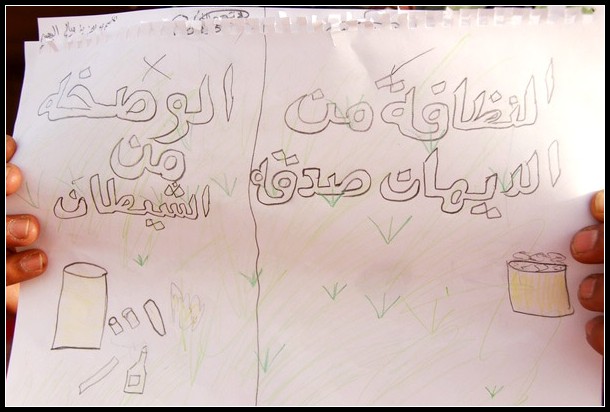 النظافة من
الايمان صدقه
الوصخه
من
الشيطان